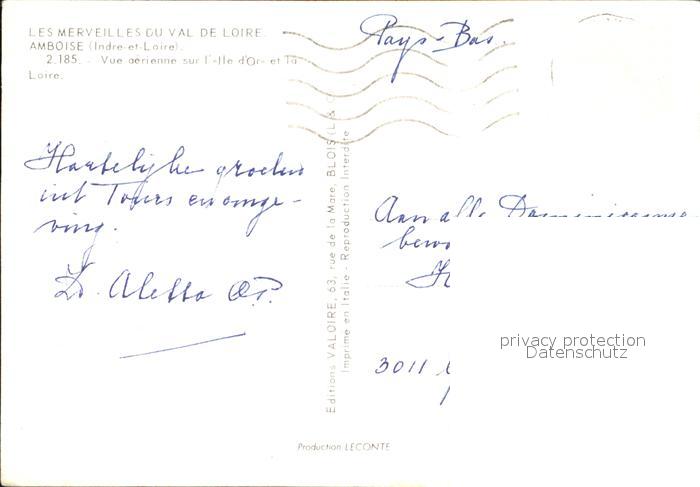 LES MERVEILLES DU VAL DE LOIRE.
AMBOISE (Indre-et-Loire).
2.185. - Vue aérienne sur l'-Ile d'Or- et la
Loire.
Pays-Bas.
Hartelijke groeten
uit Tours en omge-
ving.
Zr. Aletta O.P.
Editions VALOIRE, 63, rue de la Mare, BLOIS (L. & C.)
Imprimé en Italie - Reproduction Interdite
Aan alle
bewo
3011
privacy protection
Datenschutz
Production LECONTE